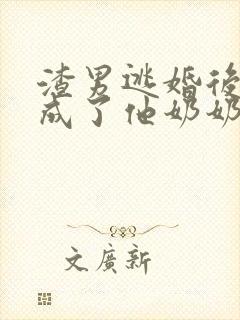 渣男逃婚後
成了他奶奶
文廣新